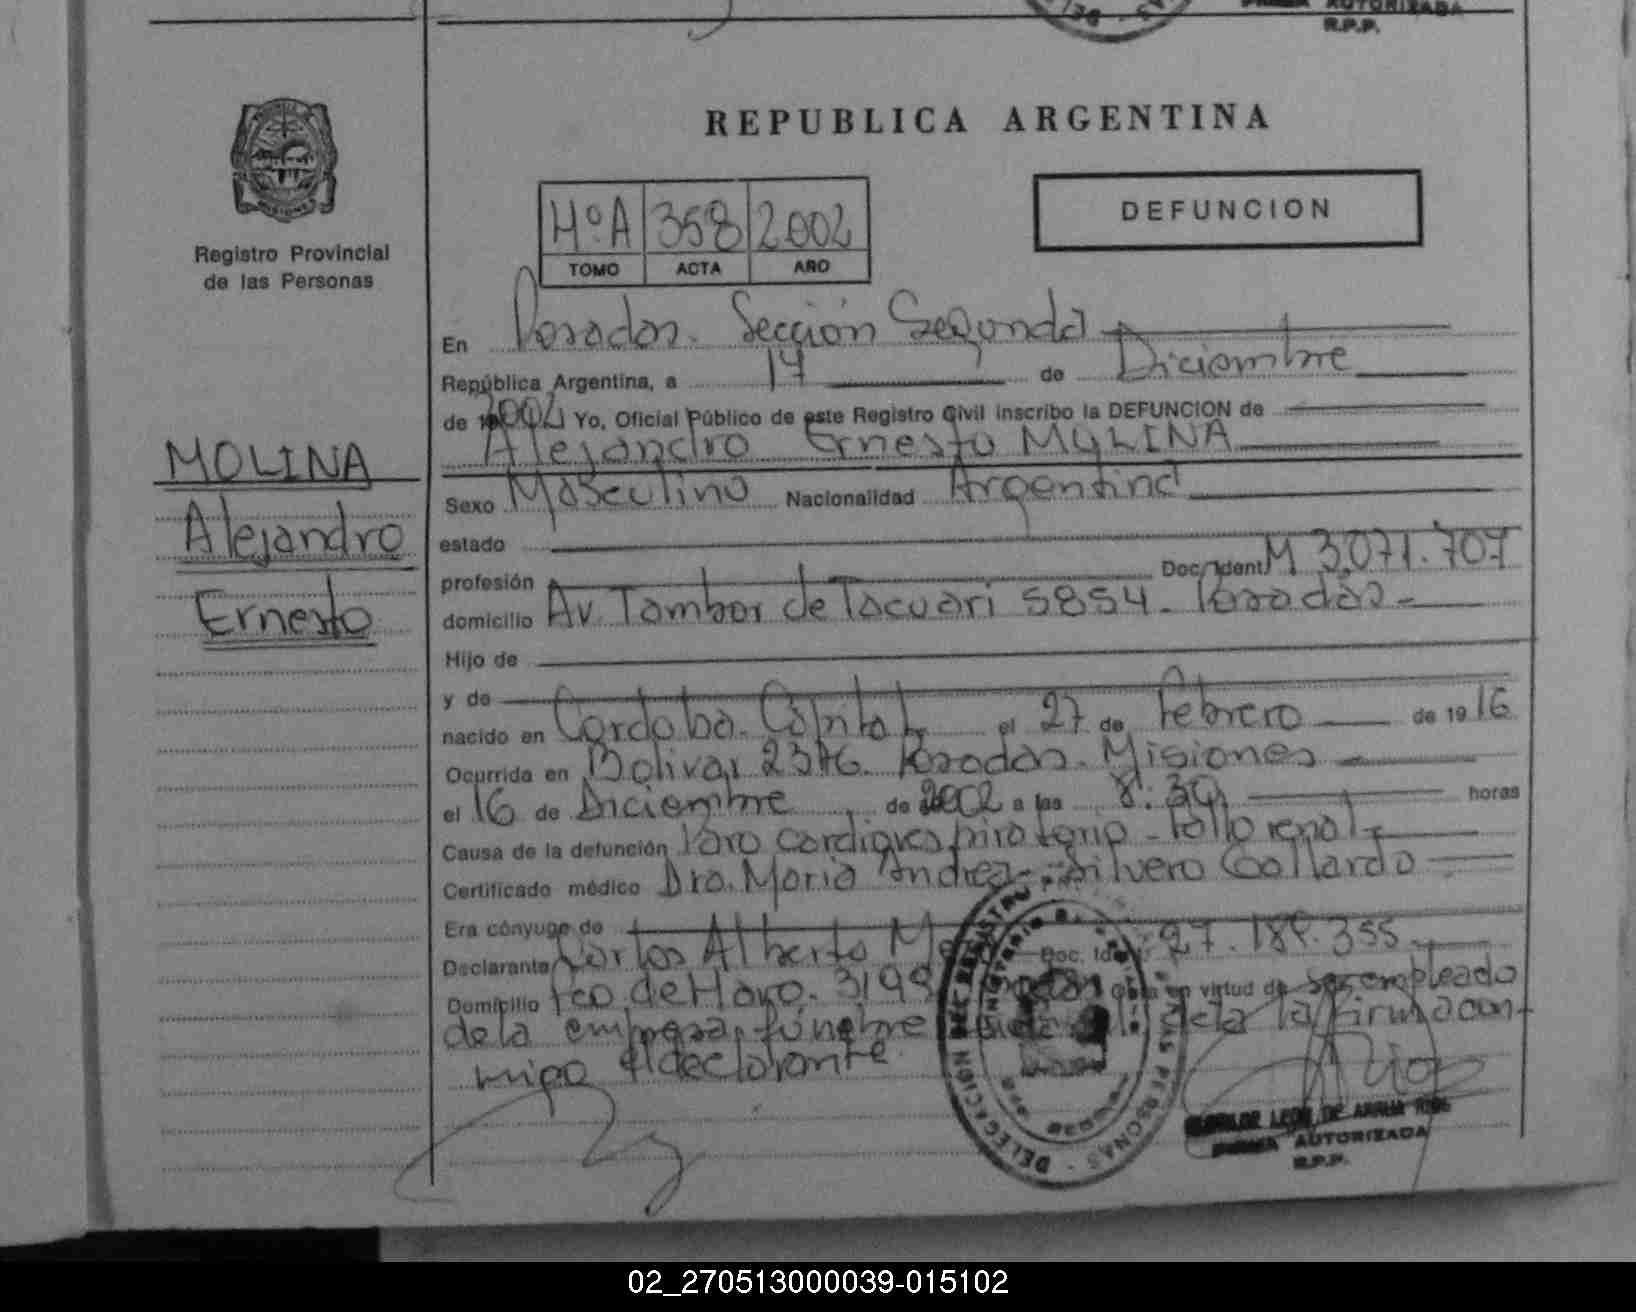 AUTORIZADA
R.P.P.
REPUBLICA ARGENTINA
Registro Provincial
de las Personas
Hº A 358 2002
TOMO ACTA AÑO
DEFUNCION
En Posadas. Sección Segunda
República Argentina, a 17 de Diciembre
de 2002 Yo, Oficial Público de este Registro Civil inscribo la DEFUNCION de
Alejandro Ernesto MOLINA
MOLINA
Alejandro
Ernesto
Sexo Masculino Nacionalidad Argentina
estado
profesión Doc. Ident. M 3.071.707
domicilio Av. Tambor de Tacuari 5854 - Posadas -
Hijo de
y de
nacido en Cordoba. Capital el 27 de Febrero de 1916
Ocurrida en Bolivar 2376. Posadas. Misiones
el 16 de Diciembre de 2002 a las 8:30 horas
Causa de la defunción Paro cardiorespiratorio - Fallo renal
Certificado médico Dra. Maria Andrea Silvero Gallardo
Era cónyuge de
Declarante Carlos Alberto Doc. Ident. 27.188.355
Domicilio Fco de Haro. 3198 Obra en virtud de ser empleado
de la empresa fúnebre la firma con-
migo el declarante.
DELEGACIÓN DEL REGISTRO DE LAS PERSONAS
LEON DE ARRUA
FIRMA AUTORIZADA
R.P.P.
02_270513000039-015102